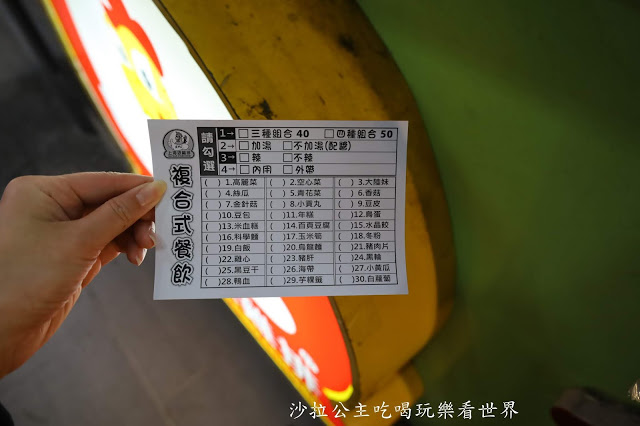 請勾選
1→ □三種組合 40 □四種組合 50
2→ □加湯 □不加湯(配醬)
3→ □辣 □不辣
4→ □內用 □外帶
複合式餐飲
( )1.高麗菜 ( )2.空心菜 ( )3.大陸妹
( )4.絲瓜 ( )5.青花菜 ( )6.香菇
( )7.金針菇 ( )8.小貢丸 ( )9.豆皮
( )10.豆包 ( )11.年糕 ( )12.鳥蛋
( )13.米血糕 ( )14.百頁豆腐 ( )15.水晶餃
( )16.科學麵 ( )17.玉米筍 ( )18.冬粉
( )19.白飯 ( )20.烏龍麵 ( )21.豬肉片
( )22.雞心 ( )23.豬肝 ( )24.黑輪
( )25.黑豆干 ( )26.海帶 ( )27.小黃瓜
( )28.鴨血 ( )29.芋粿籤 ( )30.白蘿蔔
沙拉公主吃喝玩樂看世界